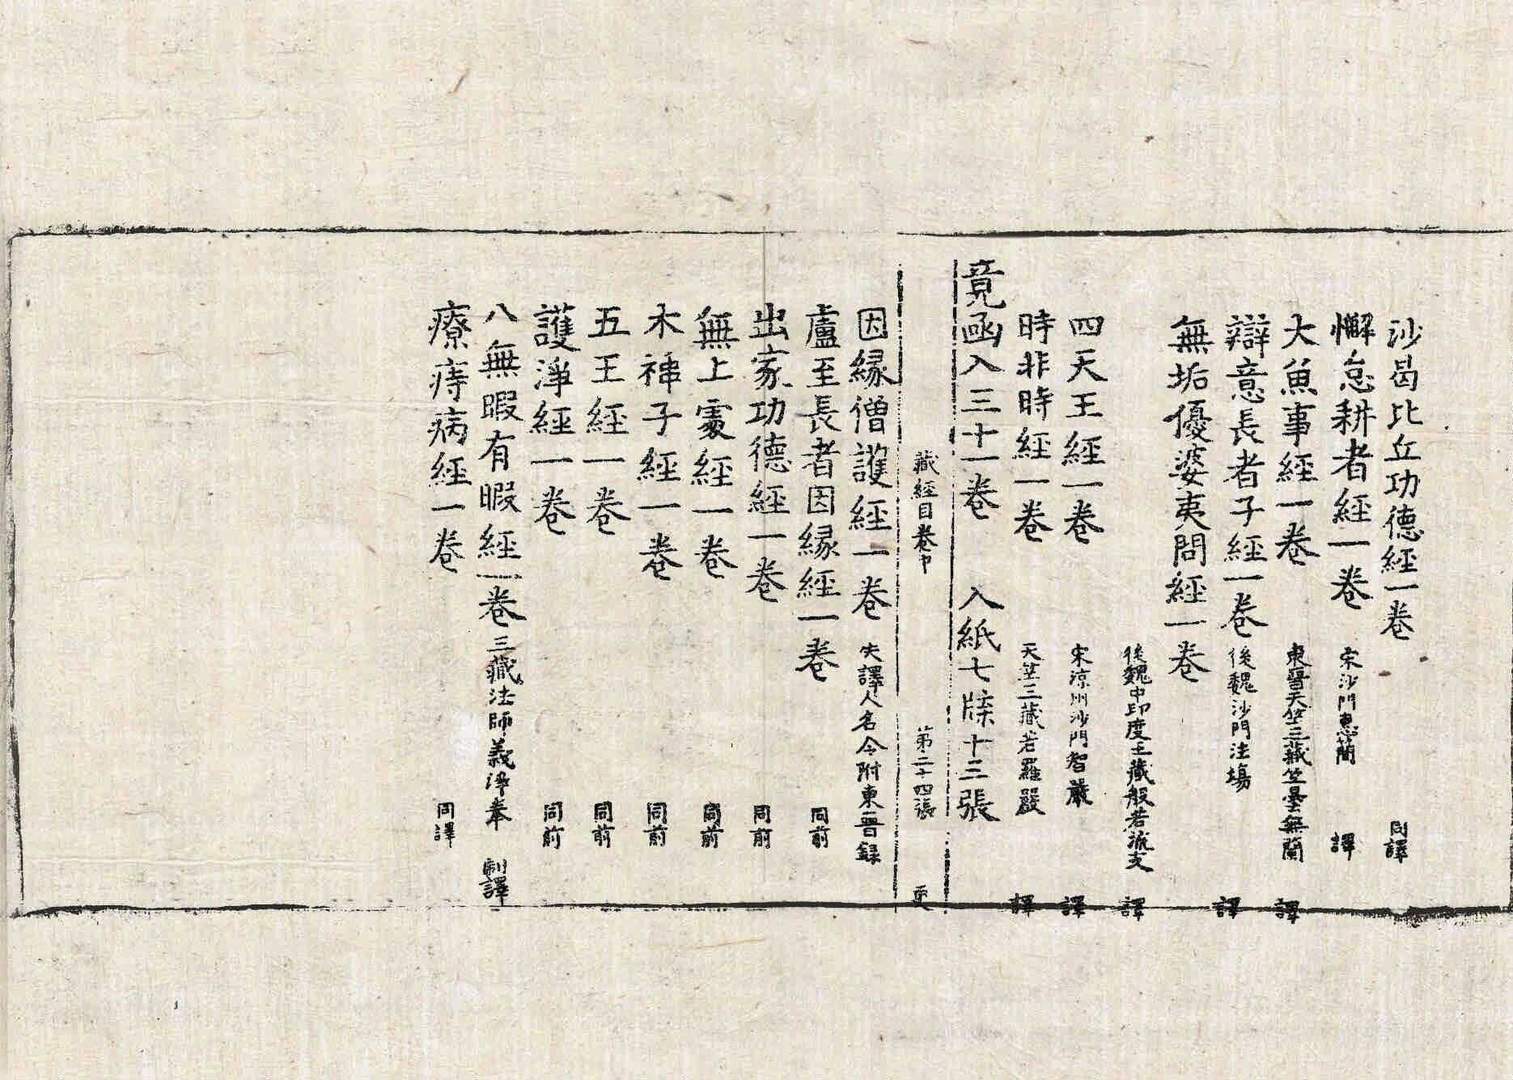 沙曷比丘功德經一卷 同譯
懈怠耕者經一卷 宋沙門惠蕳 譯
大魚事經一卷 東晉天竺三藏竺曇無蘭 譯
辯意長者子經一卷 後魏沙門法場 譯
無垢優婆夷問經一卷
後魏中印度三藏般若流支 譯
四天王經一卷 宋涼州沙門智嚴 譯
時非時經一卷 天竺三藏若羅嚴 譯
竟函入三十一卷 入紙七牒十三張
藏經目卷中 第二十四張 更
因緣僧護經一卷 失譯人名今附東晉録
盧至長者因緣經一卷 同前
出家功德經一卷 同前
無上處經一卷 同前
木槵子經一卷 同前
五王經一卷 同前
護淨經一卷 同前
八無暇有暇經一卷 三藏法師義淨奉 制譯
療痔病經一卷 同譯